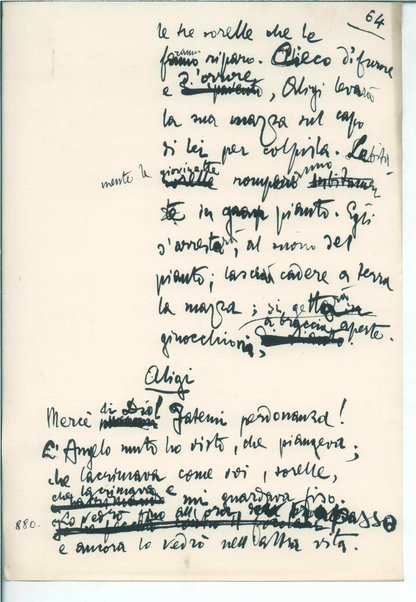 64
le tre sorelle che le
fanno riparo. Cieco di furore
e d'orrore, Aligi leverà
la sua mazza sul capo
di lei per colpirla. Subita-
mente le giovinette romperanno
in pianto. Egli
s'arresterà, al suono del
pianto; lascerà cadere a terra
la mazza; si getterà
ginocchioni, a braccia aperte.
Aligi
Mercè di Dio! Fatemi perdonanza!
L'Angelo muto ho visto, che piangeva;
che lacrimava come voi, sorelle,
e mi guardava fiso.
880.
e ancora lo vedrò nell'altra vita.